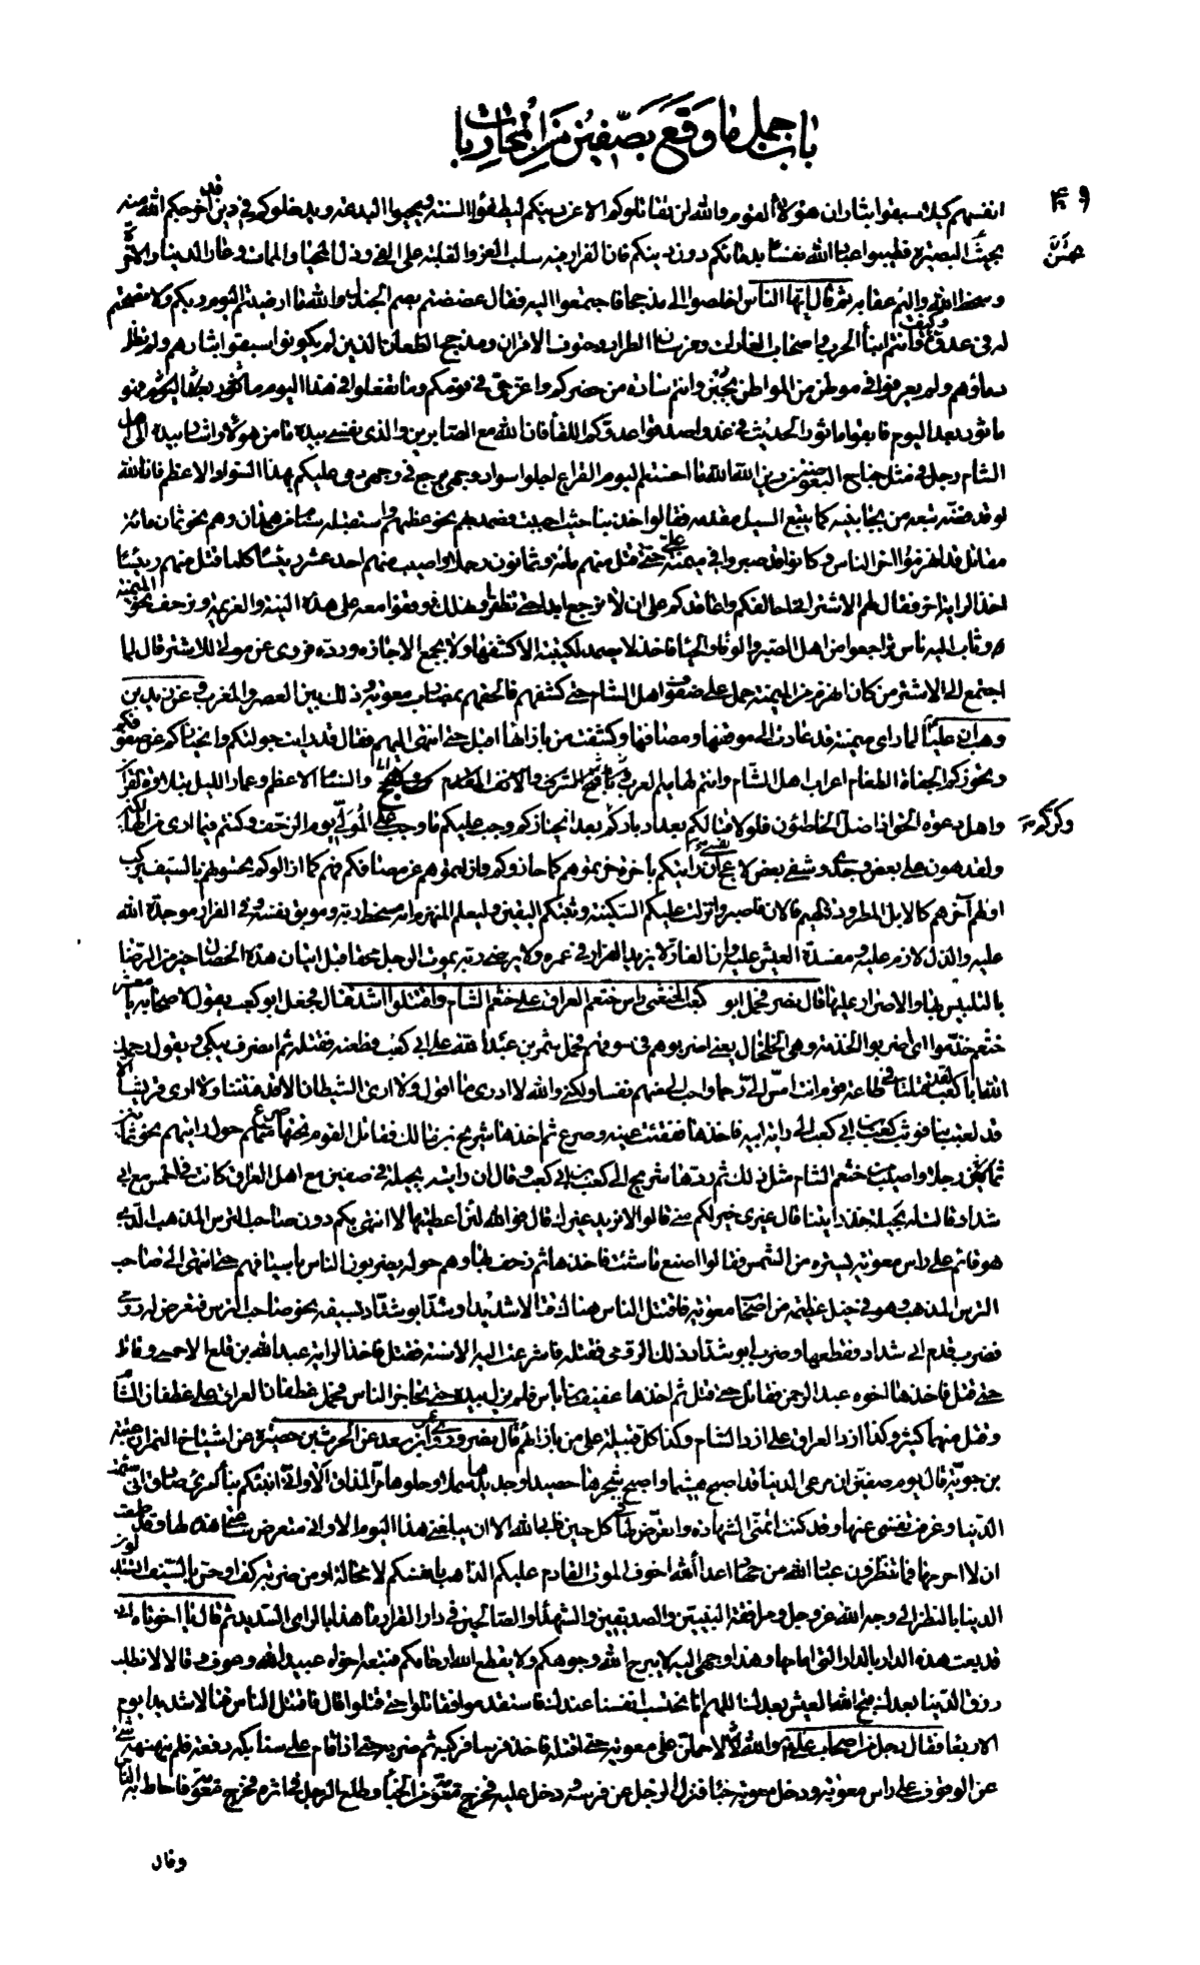 باب جمل ما وقع بصفين من المحاربات
انفسهم كيلا يسبقوا بثار ان هؤلاء القوم والله لن يقاتلوكم الا عن دينكم ليطفؤا السنة ويحيوا البدعة ويدخلوكم في دين قد اخرجكم الله منه
بحسن البصيرة فطيبوا عباد الله نفسا بدمائكم دون دينكم فان الفرار فيه سلب العز والغلبة على الفئ وذل المحيا والممات وعار الدنيا والاخرة
وسخط الله واليم عقابه ثم قال ايها الناس اخلصوا الى مذحجا فاجتمعوا اليه فقال عضضتم بصم الجندل والله ما ارضيتم اليوم ربكم ولا نصحتم
له في عدوه وكيف وانتم ابناء الحرب واصحاب الغارات وفرسان الطراد وحتوف الاقران ومذحج الطعان الذين لم يكونوا سبقوا بثارهم ولم تطل
دماؤهم ولم يعرفوا في موطن من المواطن بخسف وانتم سادة من حضركم واعز حي في قومكم وما تفعلوا في هذا اليوم ماثور بعد اليوم فاتقوا
ماثور بعد اليوم فاتقوا ماثور الحديث في غد واصدقوا عدوكم اللقاء فان الله مع الصابرين والذي نفسي بيده ما من هؤلاء واشار بيده الى اهل
الشام رجل في مثل جناح البعوضة من دين الله الله ما احسنتم اليوم القراع اجلوا سواد وجهي يرجع في وجهي دمي عليكم بهذا السواد الاعظم فان الله
لو قد فضه تبعه من بجانبيه كما يتبع السيل مقدمه فقالوا خذ بنا حيث احببت فصمد بهم نحو عظمهم واستقبله سنام من همدان وهم نحو ثمان مائة
مقاتل قد انهزموا اخر الناس وكانوا قد صبروا في ميمنة علي حتى قتل منهم مائة وثمانون رجلا واصيب منهم احد عشر رئيسا كلما قتل منهم رئيسا
اخذ الراية اخر فقال لهم الاشتر انا احالفكم واعاقدكم على ان لا نرجع ابدا حتى نظفر او نهلك فوقفوا معه على هذه النية والعزيمة وزحف نحو الميمنة
وثاب اليه ناس تراجعوا من اهل الصبر والوفاء والحياء فاخذ لا يصمد لكتيبة الا كشفها ولا بجمع الا حازه ورده فروى عن مولى للاشتر قال لما
اجتمع الى الاشتر من كان انهزم من الميمنة حمل على صفوف اهل الشام حتى كشفهم فالحقهم بمضارب معوية وذلك بين العصر والمغرب وعن زيد بن
وهب ان عليا لما راى ميمنته قد عادت الى موقفها ومصافها وكشفت من بازائها اقبل حتى انتهى اليهم فقال قد رايت جولتكم وانحيازكم عن صفوفكم
وتحوزكم الجفاة الطغام اعراب اهل الشام وانتم لهاميم العرب ويافيخ الشرف والانف المقدم والسنام الاعظم وعمار الليل بتلاوة القران
واهل دعوة الحق اذ ضل الخاطئون فلولا اقبالكم بعد ادباركم وكركم بعد انحيازكم وجب عليكم ما وجب على المولي يوم الزحف وكنتم فيما ارى من الهالكين
ولقد هون علي بعض وجدي وشفى بعض لاعج نفسي ان رايتكم باخرة حزتموهم كما حازوكم وازلتموهم عن مصافكم كما ازالوكم تحشونهم بالسيف يركب
اولهم آخرهم كالابل المطرودة الهيم فالان فاصبروا نزلت عليكم السكينة وثبتكم اليقين وليعلم المنهزم انه مسخط لربه وموبق نفسه وفي الفرار موجدة الله
عليه والذل لازم عليه ومفسدة العيش عليه وان الفار لا يزيد الفرار في عمره ولا يرضى ربه بموت الرجل محقا قبل اتيان هذه الخصال خير من الرضا
بالتلبس بها والاصرار عليها قال نصر فحمل ابو كعب الخثعمي راس خثعم العراق على خثعم الشام واقتتلوا اشد قتال فجعل ابو كعب يقول لاصحابه يا معشر
خثعم خدموا اي اضربوا الخدمة وهي الخلخال يعني اضربوهم في سوقهم فحمل شمر بن عبد الله على ابي كعب فطعنه فقتله ثم انصرف يبكي ويقول رحمك
الله ابا كعب لقد قتلتك في طاعة قوم انت امس الى رحما واحب الى منهم نفسا ولكني والله لا ادري ما اقول ولا ارى الشيطان الا قد فتننا ولا ارى قريشا الا
قد لعبت بنا فوثب كعب بن ابي كعب الى راية ابيه فاخذها ففقئت عينه وصرع ثم اخذها شريح بن مالك فقاتل القوم تحتها حتى صرع منهم حول رايتهم نحو ثمانين
رجلا واصيب من خثعم الشام مثل ذلك ثم ردها شريح الى كعب بن ابي كعب وقال ان راية بجيلة في صفين مع اهل العراق كانت في احمس مع ابي
شداد قالت له بجيلة خذ رايتنا قال غيري خير لكم مني قالوا لا نريد غيرك قال فوالله لئن اعطيتمونيها لا انتهى بكم دون صاحب الترس المذهب الذي
هو قائم على راس معوية يستره من الشمس فقالوا اصنع ما شئت فاخذها ثم زحف بها وهم حوله يضربون الناس باسيافهم حتى انتهى الى صاحب
الترس المذهب وهو في خيل عظيمة من اصحاب معوية فاقتتل الناس هنالك قتالا شديدا وشد ابو شداد بسيفه نحو صاحب الترس فتعرض له رومي
فضرب قدم ابي شداد فقطعها وضرب ابو شداد ذلك الرومي فقتله فاشرعت اليه الاسنة فقتل فاخذ الراية عبد الله بن قلع الاحمسي وقاتل
حتى قتل فاخذها اخوه عبد الرحمن فقاتل حتى قتل ثم اخذها عفيف بن اياس فلم تزل بيده حتى تحاجز الناس فحمل غطفان العراق على غطفان الشام
وقتل منهما كثير وكذا ازد العراق على ازد الشام وكذا كل قبيلة على من بازائهم قال نصر وروى عن ابن سعد عن الحرث بن حصيرة عن اشياخ النمر ان عتبة
بن جوية قال يوم صفين ان مرعى الدنيا قد اصبح هشيما واصبح شجرها حصيدا وجديدها سملا وحلوها مر المذاق الا واني انبئكم نبأ امرئ صادق اني سئمت
الدنيا وعزفت نفسي عنها وقد كنت اتمنى الشهادة واتعرض لها في كل حين فابى الله الا ان يبلغني هذا اليوم الا واني متعرض ساعتي هذه لها وقد طمعت
ان لا احرمها فما تنتظرون عباد الله من جهاد اعداء الله اخوف الموت القادم عليكم الذاهب بانفسكم لا محالة او من ضربة كف او جبين بالسيف اتستبدلون
الدنيا بالنظر الى وجه الله عز وجل ومرافقة النبيين والصديقين والشهداء والصالحين في دار القرار ما هذا بالراي السديد ثم قال يا اخوتاه اني
قد بعت هذه الدار بالدار التي امامها وهذا وجهي اليه لا يبرح الله وجوهكم ولا يقطع الله ارحامكم فتبعه اخواه عبيد الله وعوف وقالا لا نطلب
رزق الدنيا بعدك قبح الله العيش بعدك اللهم انا نحتسب انفسنا عندك فاستقدموا فقاتلوا حتى قتلوا قال فاقتتل الناس قتالا شديدا يوم
الاربعا فقال رجل من اصحاب علي والله لاحملن على معوية حتى اقتله فاخذ فرسا فركبه ثم ضربه حتى اذا قام على سنابكه دفعه فلم ينهنهه شئ
عن الوقوف على راس معوية ودخل معوية خباء فنزل الرجل عن فرسه ودخل عليه فخرج معوية من الخباء وطلع الرجل في اثره فخرج معوية فاحاط به الناس
وقال